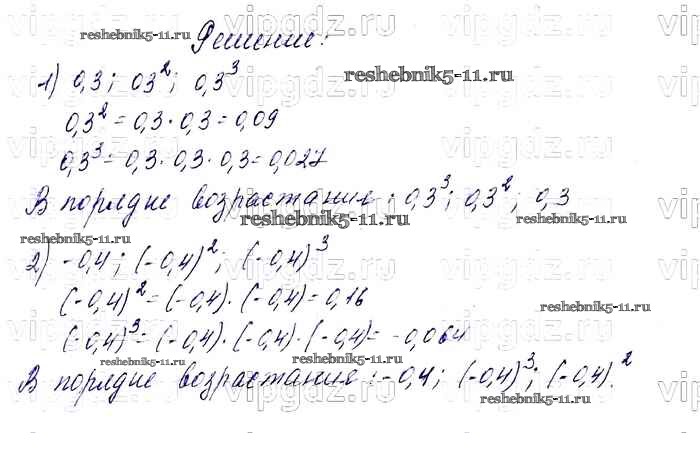 Решение:
1) 0,3; 0,3²; 0,3³
0,3² = 0,3 · 0,3 = 0,09
0,3³ = 0,3 · 0,3 · 0,3 = 0,027
В порядке возрастания: 0,3³; 0,3²; 0,3
2) -0,4; (-0,4)²; (-0,4)³
(-0,4)² = (-0,4) · (-0,4) = 0,16
(-0,4)³ = (-0,4) · (-0,4) · (-0,4) = -0,064
В порядке возрастания: -0,4; (-0,4)³; (-0,4)².
reshebnik5-11.ru
reshebnik5-11.ru
reshebnik5-11.ru
reshebnik5-11.ru
reshebnik5-11.ru
reshebnik5-11.ru
reshebnik5-11.ru
reshebnik5-11.ru
reshebnik5-11.ru
vipgdz.ru